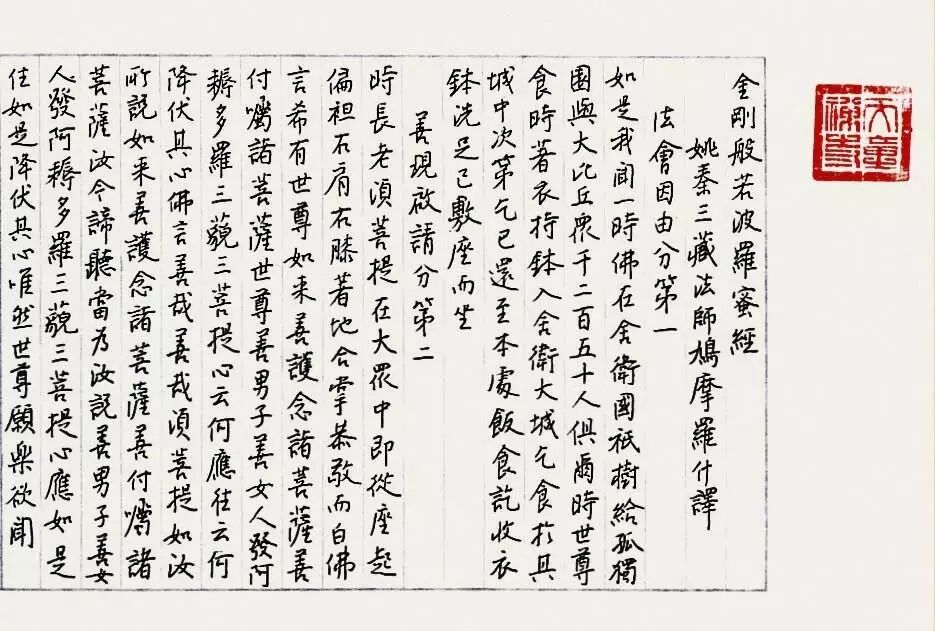 天童
金剛般若波羅蜜經
姚秦三藏法師鳩摩羅什譯
法會因由分第一
如是我聞一時佛在舍衛國祇樹給孤獨
園與大比丘眾千二百五十人俱爾時世尊
食時著衣持鉢入舍衛大城乞食於其
城中次第乞已還至本處飯食訖收衣
鉢洗足已敷座而坐
善現啟請分第二
時長老須菩提在大眾中即從座起
偏袒右肩右膝著地合掌恭敬而白佛
言希有世尊如来善護念諸菩薩善
付囑諸菩薩世尊善男子善女人發阿
耨多羅三藐三菩提心云何應住云何
降伏其心佛言善哉善哉須菩提如汝
所說如来善護念諸菩薩善付囑諸
菩薩汝今諦聽當為汝說善男子善女
人發阿耨多羅三藐三菩提心應如是
住如是降伏其心唯然世尊願樂欲聞